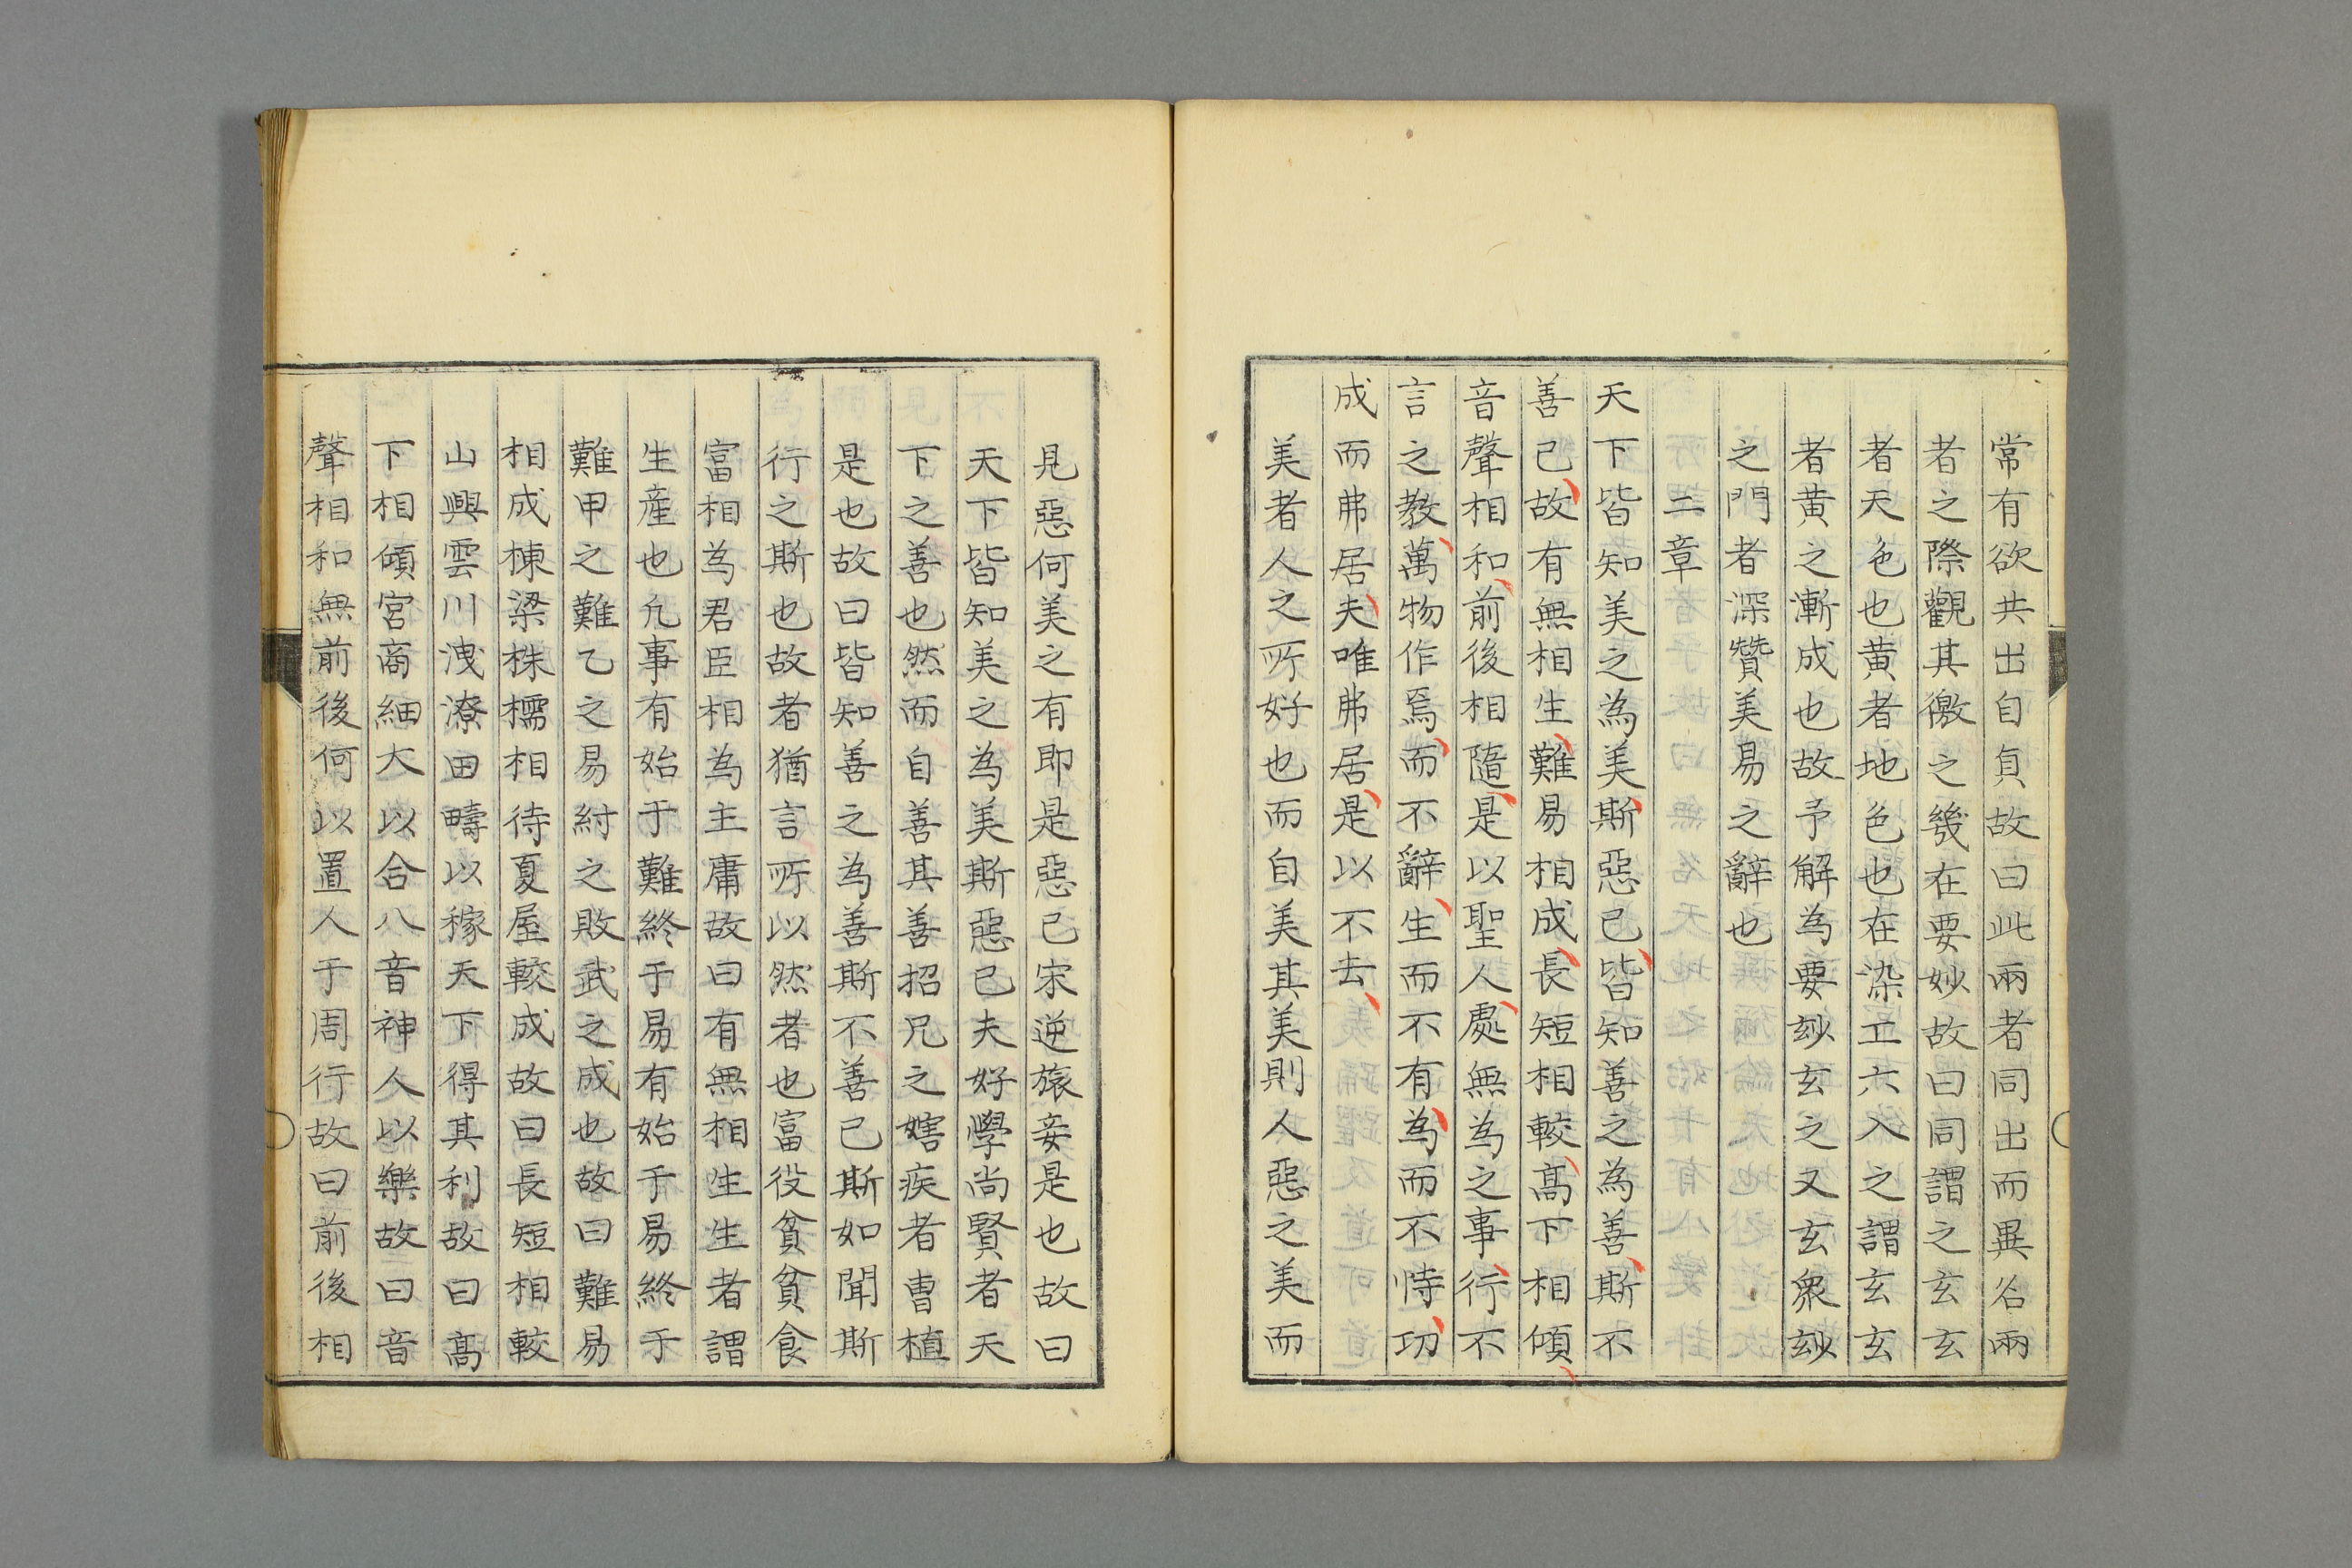 常有欲共出自貟故曰此兩者同出而異名兩
者之際觀其徼之㡬在要妙故曰同謂之玄玄
者天色也黄者地色也在染工六入之謂玄玄
者黄之漸成也故予解為要玅玄之又玄衆玅
之門者深贊美易之辭也
二章
天下皆知美之為美斯惡已皆知善之為善斯不
善已故有無相生難易相成長短相較高下相傾
音聲相和前後相隨是以聖人處無為之事行不
言之教萬物作焉而不辭生而不有為而不恃功
成而弗居夫唯弗居是以不去
美者人之所好也而自美其美則人惡之美而
見惡何美之有即是惡已宋逆旅妾是也故曰
天下皆知美之為美斯惡已夫好學尚賢者天
下之善也然而自善其善招兄之媎疾者曹植
是也故曰皆知善之為善斯不善已斯如聞斯
行之斯也故者猶言所以然者也富役貧貧食
富相為君臣相為主庸故曰有無相生生者謂
生産也凢事有始于難終于易有始于易終于
難甲之難乙之易紂之敗武之成也故曰難易
相成棟梁株檽相待夏屋較成故曰長短相較
山興雲川洩潦田疇以稼天下得其利故曰高
下相傾宮商細大以合八音神人以樂故曰音
聲相和無前後何以置人于周行故曰前後相